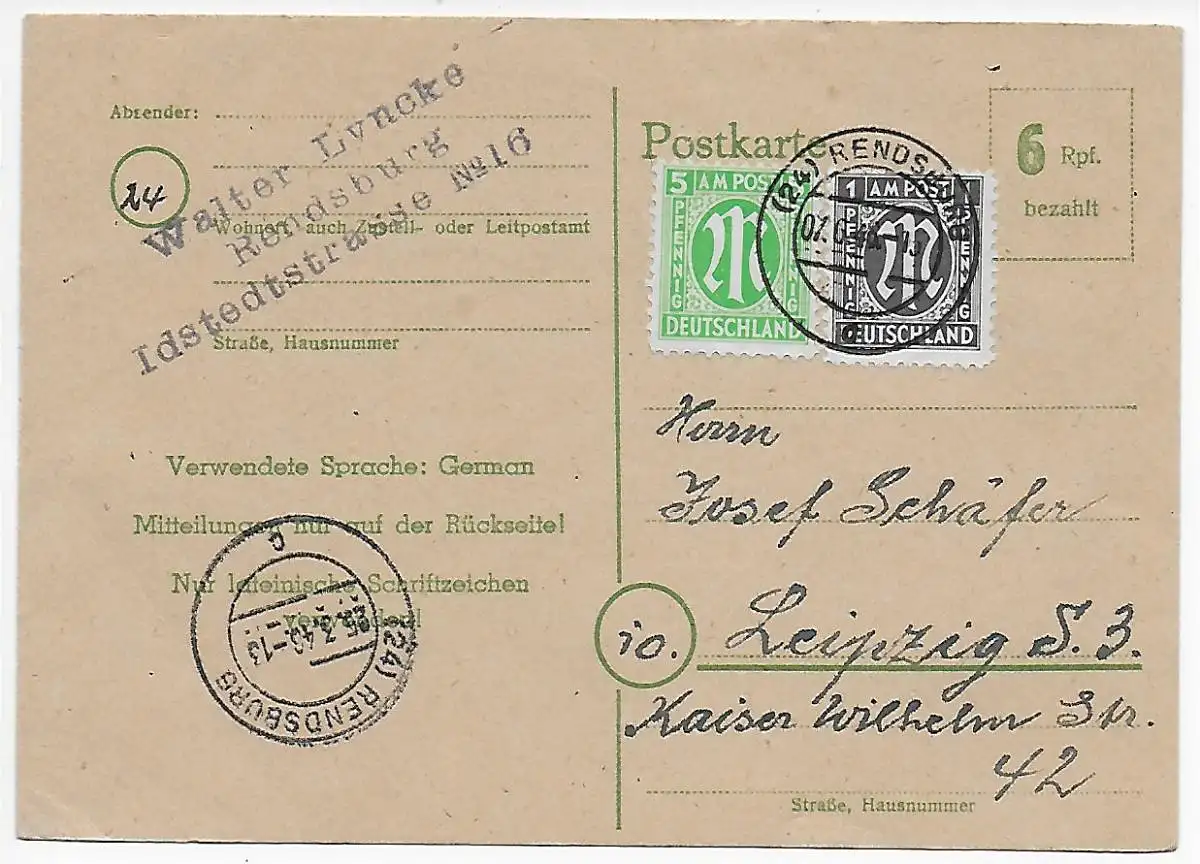 Absender:
Walter Lyncke
Rendsburg
Idstedtstrasse №16
24
Wohnort, auch Zustell- oder Leitpostamt
Straße, Hausnummer
Verwendete Sprache: German
Mitteilungen nur auf der Rückseite!
Nur lateinische Schriftzeichen
verwenden!
(24) RENDSBURG
c
Postkarte
6 Rpf.
bezahlt
5 AM POST 5
PFENNIG PFENNIG
DEUTSCHLAND
1 AM POST 1
PFENNIG PFENNIG
DEUTSCHLAND
(24) RENDSBURG
Herrn
Josef Schäfer
10. Leipzig S. 3.
Kaiser Wilhelm Str.
42
Straße, Hausnummer